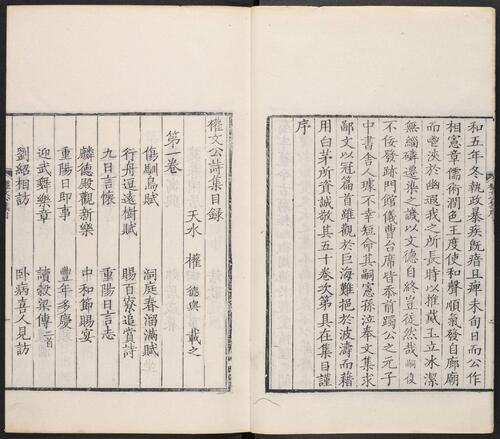 和五年冬執政暴疾旣瘖且痺未旬日而公作
相憲章儒術潤色王度使和聲順氣發自廊廟
而鬯浹於幽遐我之所長時以推蔵玉立冰潔
無緇磷邊染之譏以文德自終豈徒然哉嗣復
不佞發跡門館儀曹台席皆忝前躅公之元子
中書舍人璩不幸短命其嗣憲孫泣奉文集求
鄙文以冠篇首雖觀於巨海難挹於波濤而藉
用白茅所資誠敬其五十卷次第具在集目謹
序
權文公詩集目録
天水 權 德輿 載之
第一卷
傷馴鳥賦 洞庭春溜滿賦
行舟逗遠樹賦 賜百寮追賞詩
九日言懷 重陽日言志
麟德殿觀新樂 中和節賜宴
重陽日即事 豐年多慶
迎武舞樂章 讀穀梁傳二首
劉紹相訪 卧病喜人見訪